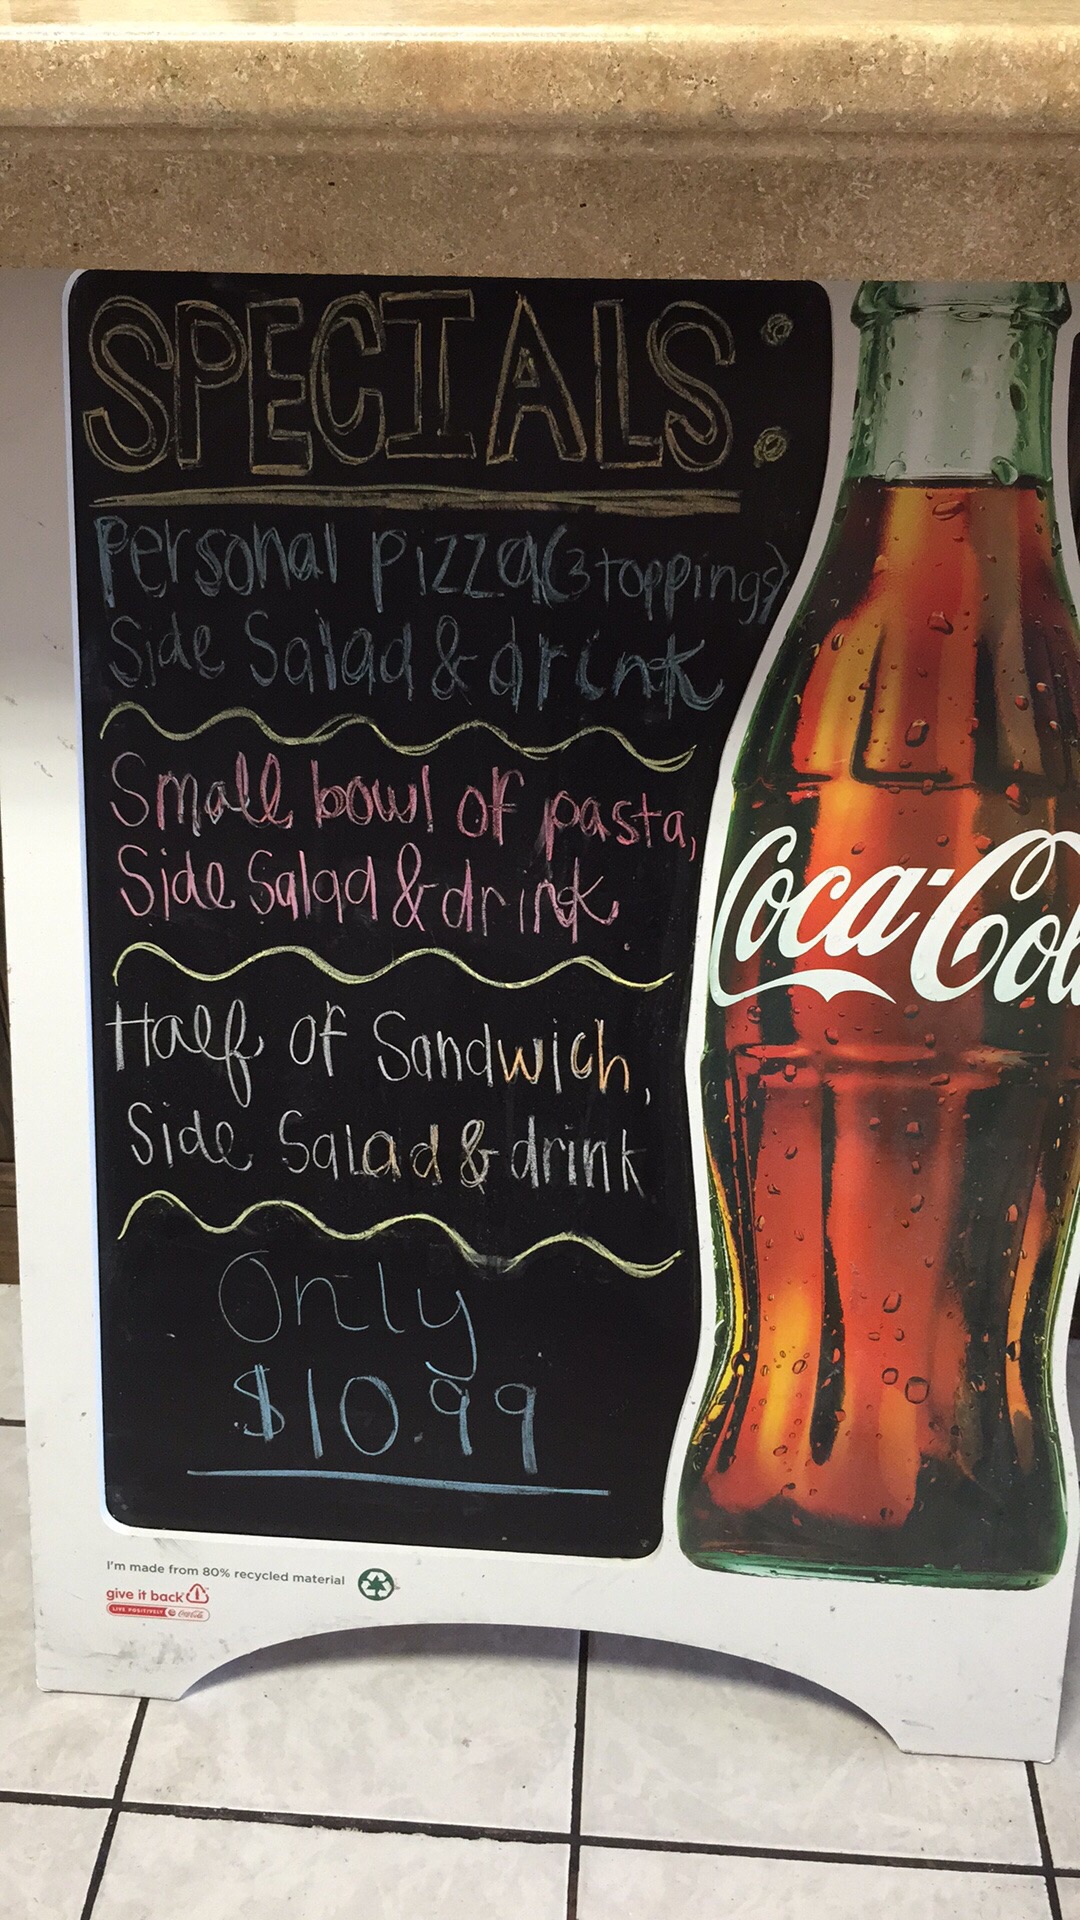 SPECIALS:
Personal pizza (3 toppings)
Side Salad & drink
Small bowl of pasta,
Side Salad & drink
Half of Sandwich,
Side Salad & drink
Only
$10.99
Coca-Col
I'm made from 80% recycled material
give it back
LIVE POSITIVELY Coca-Cola